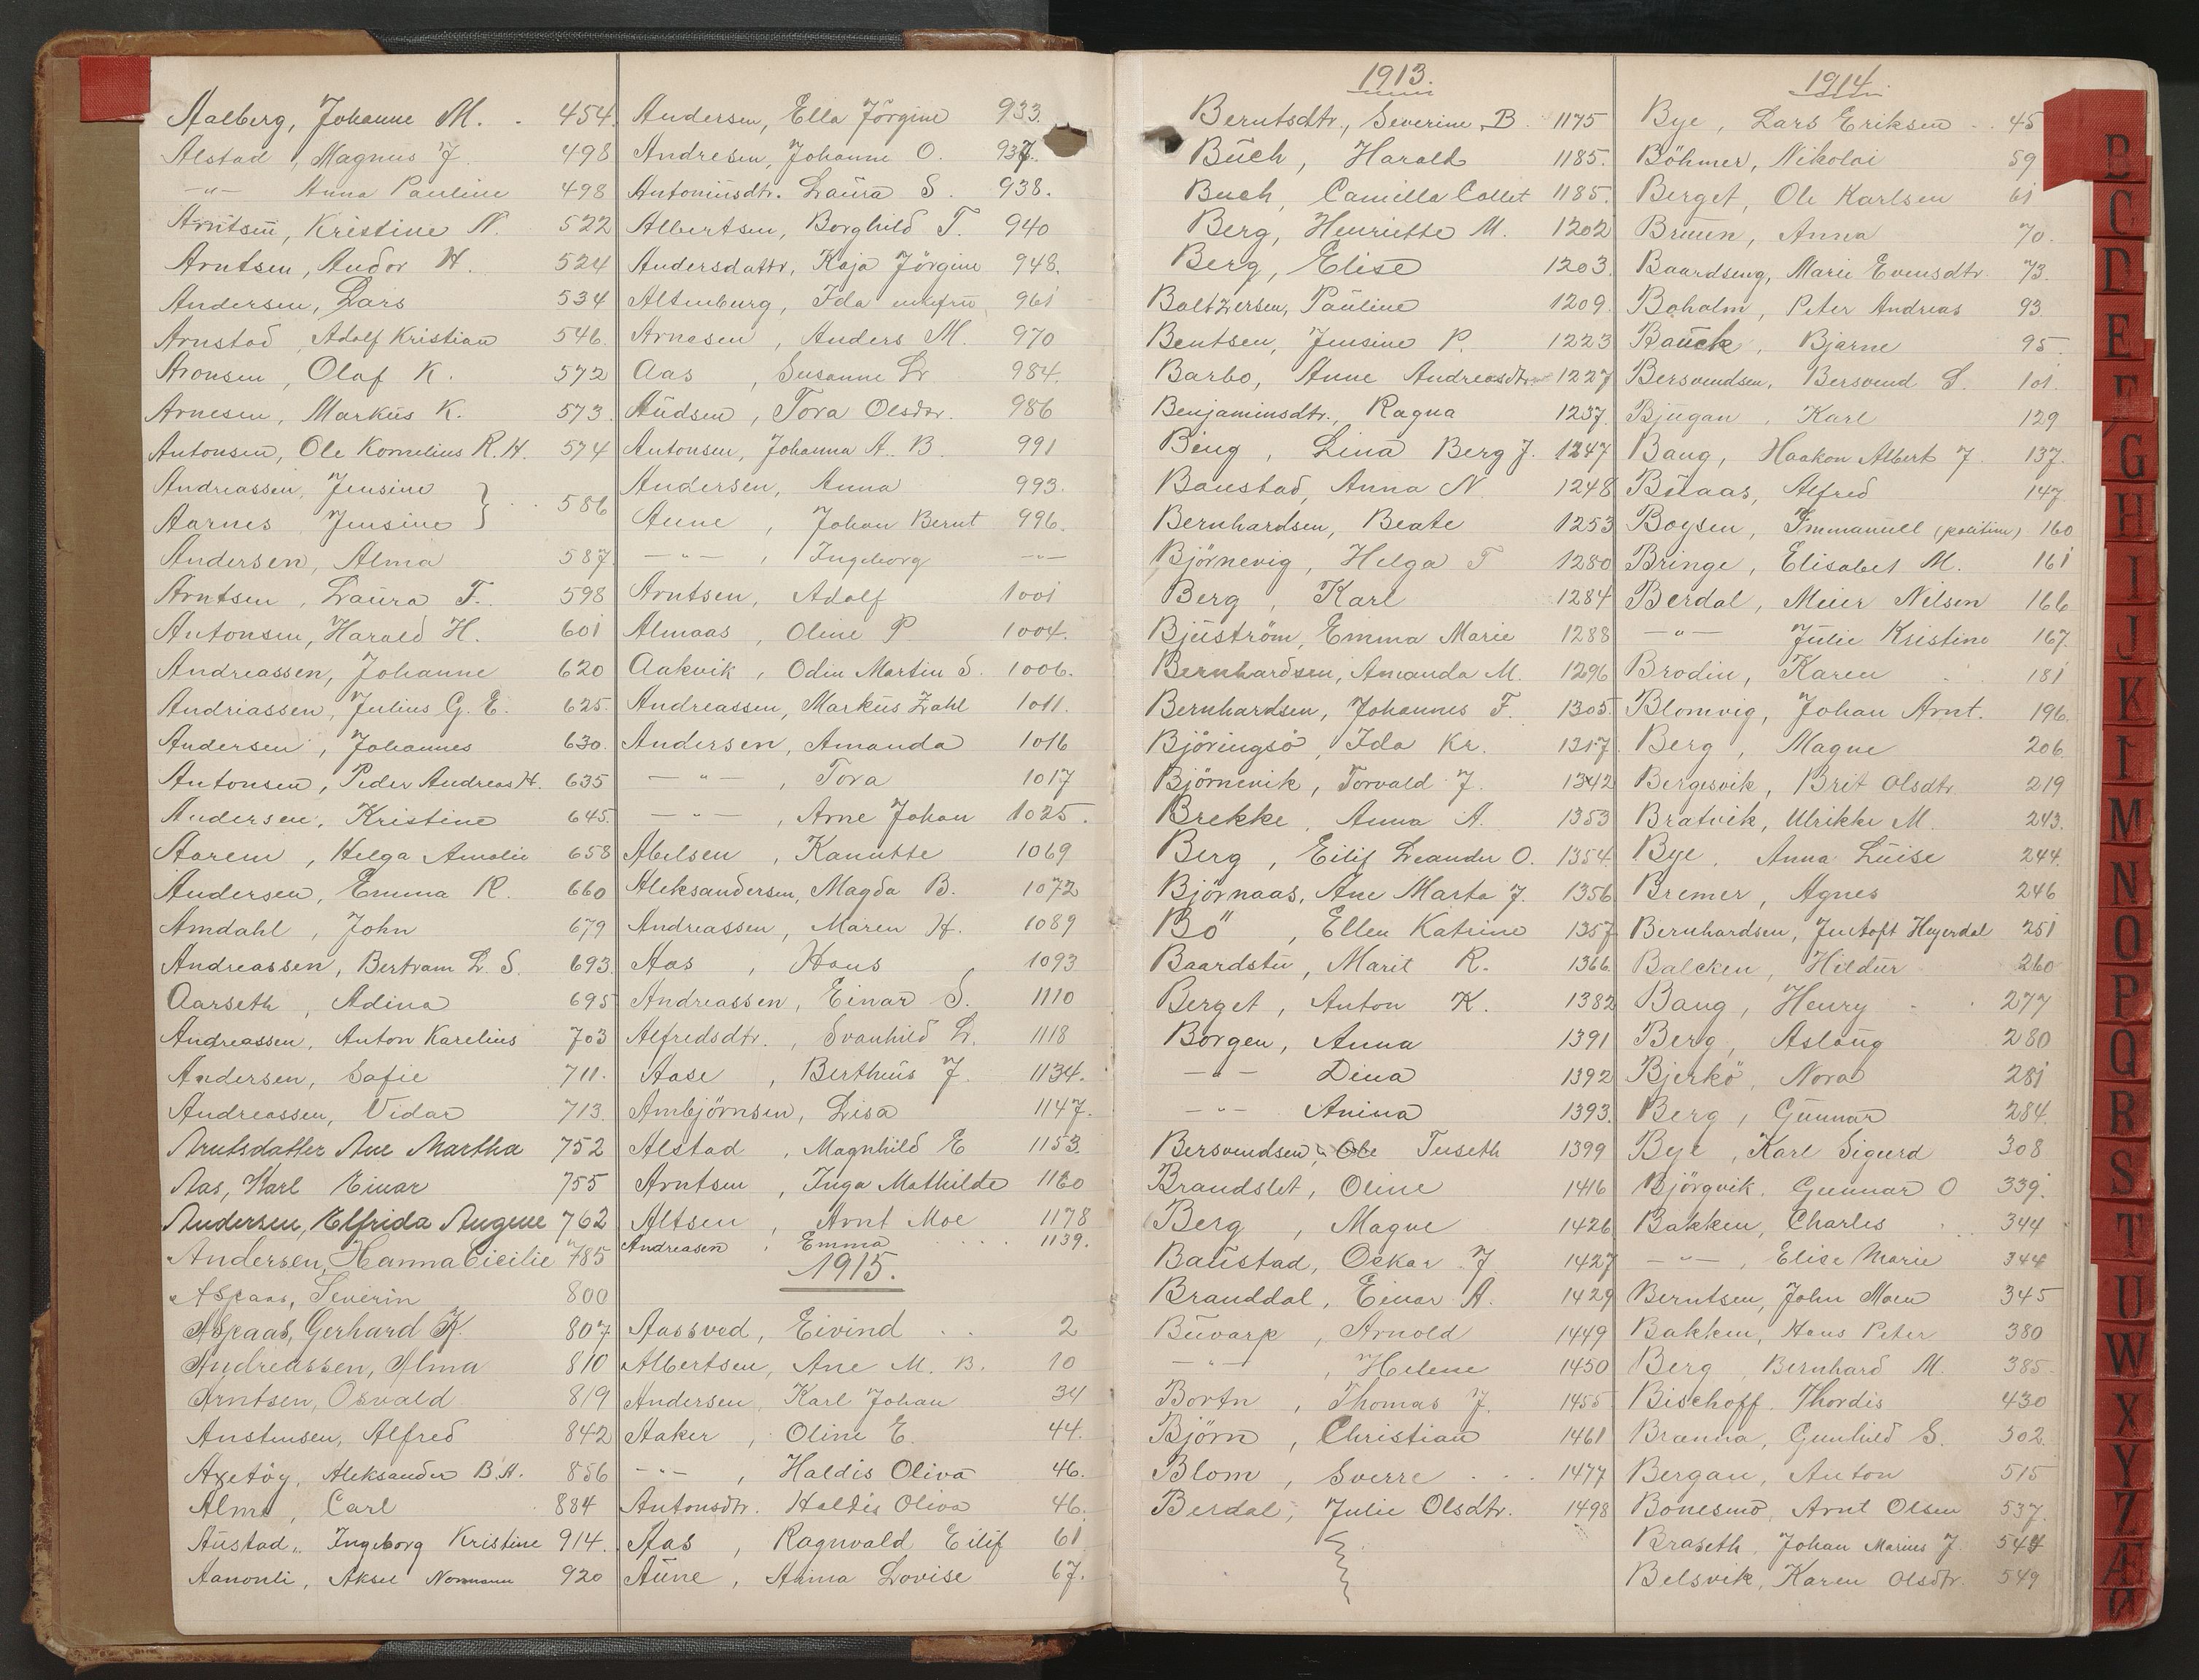 Aalberg, Johanne M. 454
Alstad, Magnus J. 498
—"— Anna Pauline 498
Arntsen, Kristine N. 522
Arntsen, Andor H. 524
Andersen, Lars 534
Arnstad, Adolf Kristian 546.
Aronsen, Olaf K. 572
Arnesen, Markus K. 573
Antonsen, Ole Kornelius R. H. 574
Andreassen, Jensine } 586
Aarnes Jensine
Andersen, Alma 587
Arntsen, Laura F. 598
Antonsen, Harald H. 601
Andreassen, Johanne 620
Andriassen, Julius G. E. 625.
Andersen, Johannes 630.
Antonsen, Peder Andreas H. 635
Andersen, Kristine 645.
Aarem, Helga Amalie 658
Andersen, Emma R. 660
Amdahl, John 679
Andreassen, Bertram L. S. 693
Aarseth, Adina 695
Andreassen, Anton Karelius 703
Andersen, Sofie 711.
Andreassen, Vidar 713.
Arntsdatter Ane Martha 752
Aas, Karl Einar 755
Andersen, Elfrida Augene 762
Andersen, Hanna Cicilie 785
Aspaas, Severin 800
Aspaas, Gerhard K. 807
Andreassen, Alma 810
Arntsen, Osvald 819
Anstensen, Alfred 842
Axetöy, Aleksander B. A. 856
Alme, Carl 884
Austad, Ingeborg Kristine 914.
Aanonli, Aksel Normann 920
Andersen, Ella Jörgine 933.
Andresen, Johanne O. 937.
Antoniusdtr. Laura S. 938.
Albertsen, Borghild T. 940
Andersdattr, Kaja Jörgine 948.
Altenburg, Ida enkefru 961
Arnesen, Anders M. 970
Aas, Susanne L. 984.
Audsen, Tora Olsdtr. 986
Antonsen, Johanna A. B. 991
Andersen, Anna 993.
Aune, Johan Bernt 996.
—"—, Ingeborg —"—
Arntsen, Adolf 1001
Almaas, Oline P 1004.
Aakvik, Odin Martin S. 1006.
Andreassen, Markus Zahl 1011.
Andersen, Amanda 1016
—"—, Tora 1017
—"—, Arne Johan 1025.
Abelsen, Kanutte 1069
Aleksandersen, Magda B. 1072
Andreassen, Maren H. 1089
Aas, Hans 1093
Andreassen, Einar S. 1110
Alfredsdtr., Svanhild L. 1118
Aase, Berthius J. 1134.
Ambjörnsen, Lisa 1147.
Alstad, Magnhild E 1153.
Arntsen, Inga Mathilde 1160
Altsen, Arnt Moe 1178
Andreasen, Emma 1139.
1915.
Aassved, Eivind 2
Albertsen, Ane M. B. 10
Andersen, Karl Johan 34
Aaker, Oline E. 44.
—"—, Haldis Oliva 46.
Antonsdtr. Haldis Oliva 46.
Aas, Ragnvald Eilif 61
Aune, Anna Lovise 67.
1913.
Berntsdtr., Severine B. 1175
Buch, Harald 1185.
Buch, Camilla Collet 1185.
Berg, Henriette M. 1202
Berg, Elise 1203.
Baltzersen, Pauline 1209.
Bentsen, Jensine P. 1223
Barbo, Anne Andreasdtr 1227
Benjaminsdtr., Ragna 1237.
Bing, Lina Berg J. 1247
Baustad, Anna N. 1248
Bernhardsen, Beate 1253
Björnevig, Helga T 1280
Berg, Karl 1284
Bjuström, Emma Marie 1288
Bernhardsen, Amanda M. 1296
Bernhardsen, Johannes F. 1305
Björingsö, Ida Kr. 1317.
Björnevik, Torvald J. 1342
Brekke, Anna A. 1353
Berg, Eilif Leander O. 1354.
Björnaas, Ane Marta J. 1356
Bö, Ellen Katrine 1357
Baardstu, Marit R. 1366
Berget, Anton K. 1382
Borgen, Anna 1391
—"— Dina 1392
—"— Anina 1393.
Bersvendsen, Ole Tuseth 1399
Brandslet, Oline 1416
Berg, Magne 1426
Baustad, Oskar J. 1427
Branddal, Einar A. 1429
Buvarp, Arnold 1449
—"—, Helene 1450
Bortn, Thomas J. 1455
Björn, Christian 1461
Blom, Sverre 1477
Berdal, Julie Olsdtr. 1498
1914.
Bye, Lars Eriksen 45
Böhmer, Nikolai 59
Berget, Ole Karlsen 61
Bruun, Anna 70.
Baardseng, Marie Evensdtr. 73.
Boholm, Peter Andreas 93.
Bauck, Bjarne 95.
Bersvendsen, Bersvend S. 101.
Bjugan, Karl 129
Bang, Haakon Albert J. 137.
Buaas, Alfred 147
Boysen, Immanuell (politim) 160
Bringe, Elisabet M. 161
Berdal, Meier Nilsen 166
—"— Julie Kristine 167.
Brodin, Karen 181
Blomvig, Johan Arnt. 196.
Berg, Magne 206
Bergesvik, Brit Olsdtr. 219
Bratvik, Ulrikke M. 243.
Bye, Anna Luise 244.
Bremer, Agnes 246
Bernhardsen, Jentoft Heyerdal 251
Balcken, Hildur 260
Bang, Henry 277
Berg, Aslaug 280
Bjerkö, Nora 281
Berg, Gunnar 284.
Bye, Karl Sigurd 308
Björgvik, Gunnar O 339.
Bakken, Charles 344
—"—, Elise Marie 344
Berntsen, John Moen 345
Bakken, Hans Peter 380
Berg, Bernhard M. 385
Bischoff, Thordis 430
Brænna, Gunhild S. 502
Bergan, Anton 515
Bonesmo, Arnt Olsen 537.
Braseth, Johan Marius J. 544
Belsvik, Karen Olsdtr. 549
B
C
D
E
F
G
H
I
J
K
L
M
N
O
P
Q
R
S
T
U
W
X
Y
Z
Æ
Ø